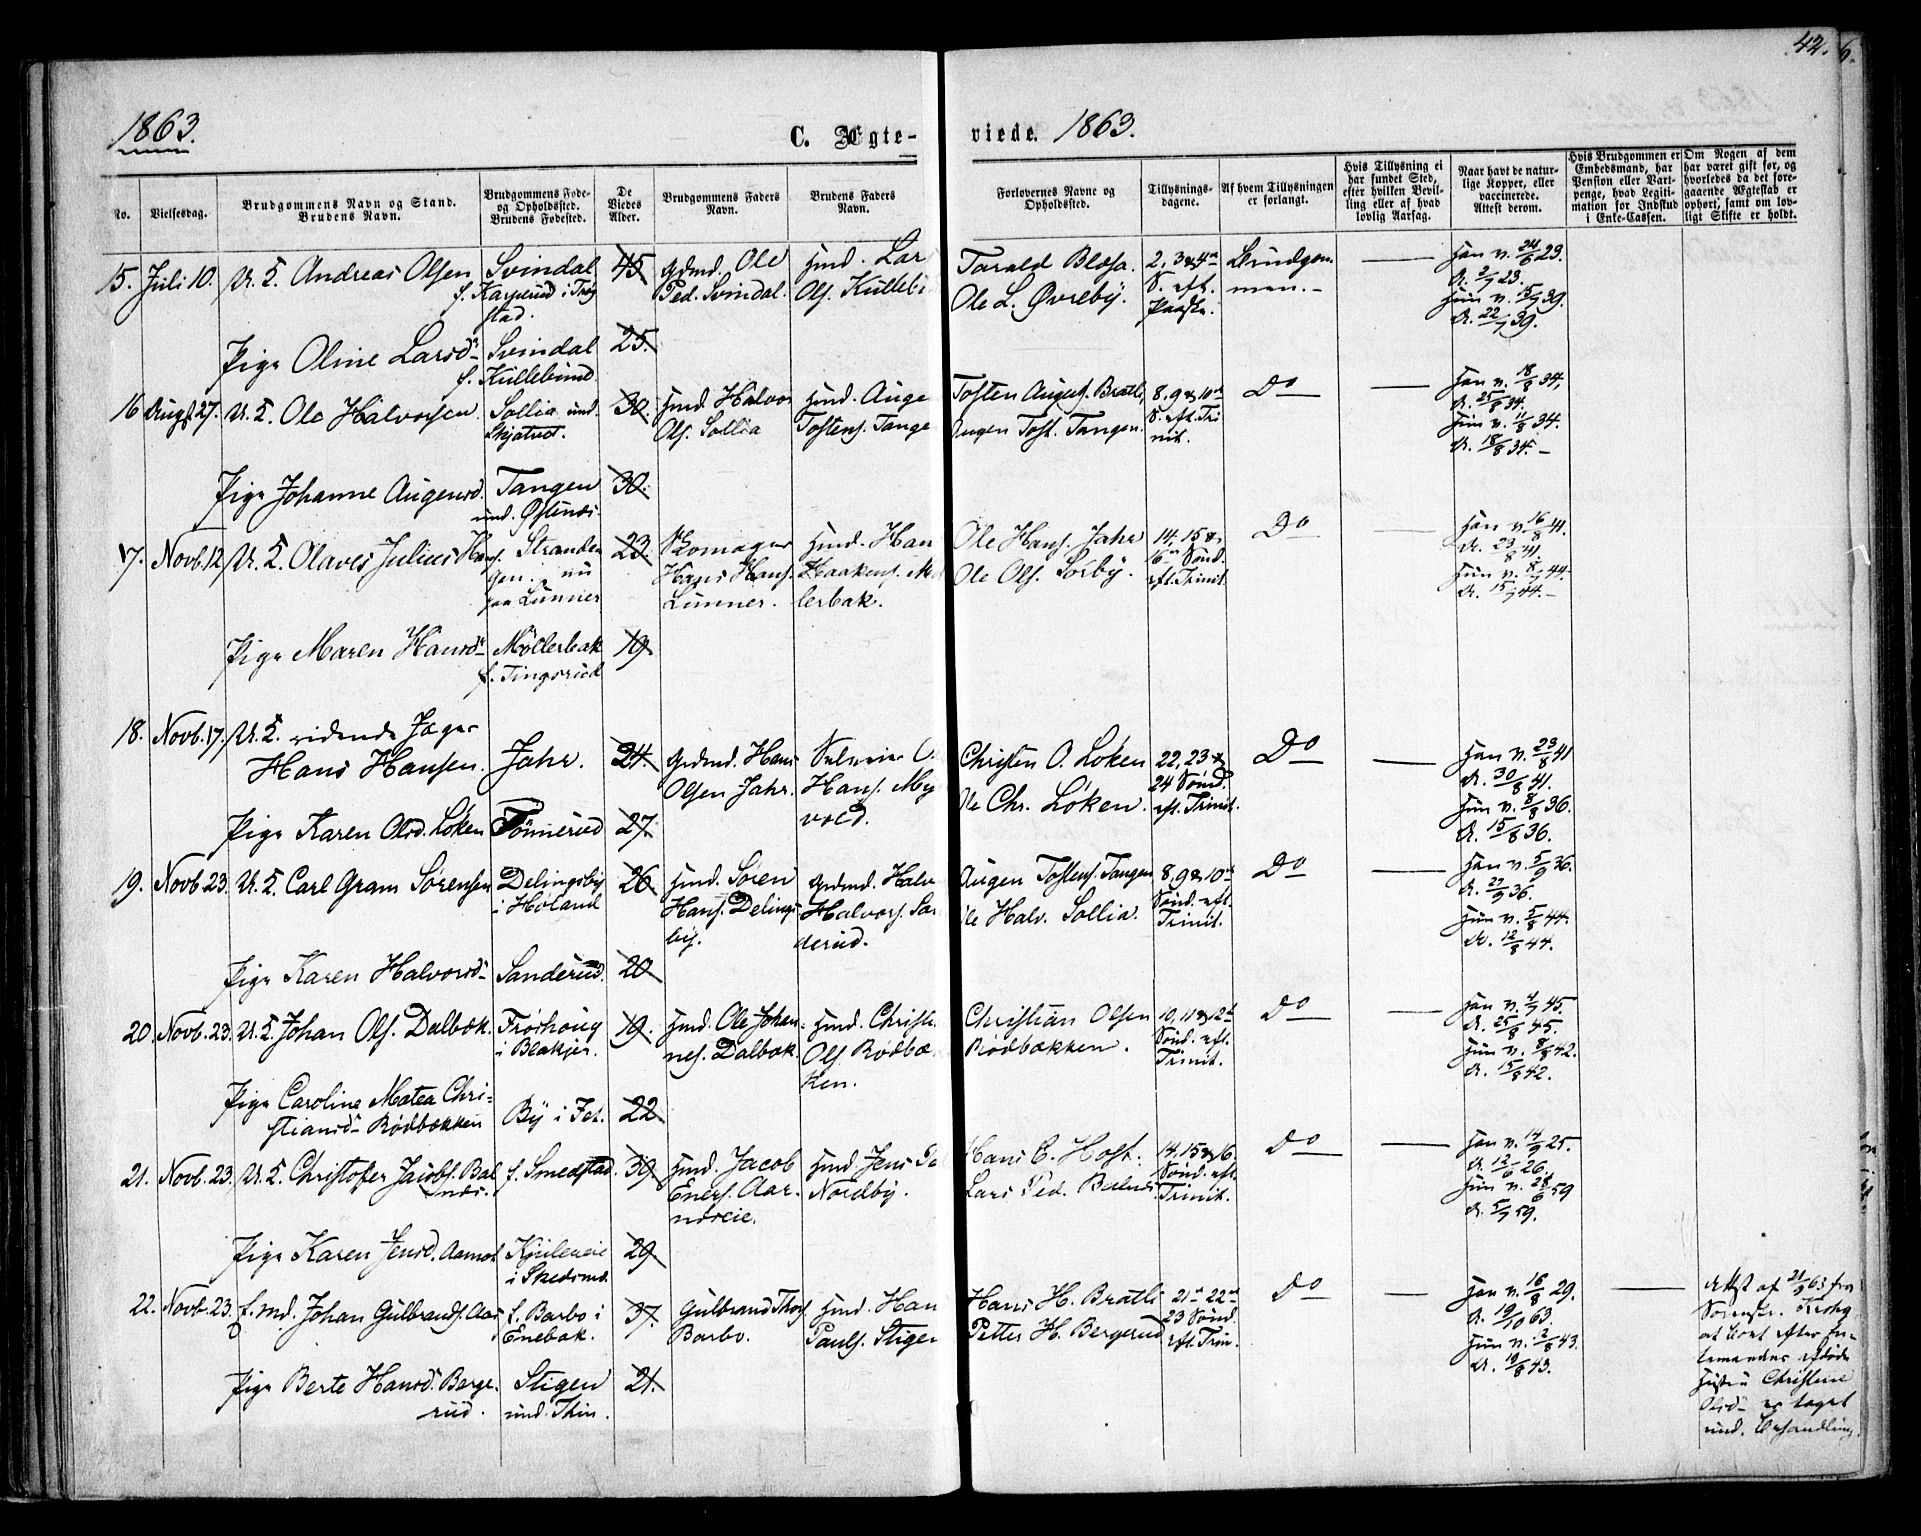 42. 6.
1863.
C. Ægte-
viede. 1863.
No.
Vielsesdag.
Brudgommens Navn og Stand.
Brudens Navn.
Brudgommens Føde-
og Opholdssted.
Brudens Fødested.
De
Viedes
Alder.
Brudgommens Faders
Navn.
Brudens Faders
Navn.
Forlovernes Navne og
Opholdssted.
Tillysnings-
dagene.
Af hvem Tillysningen
er forlangt.
Hvis Tillysning ei
har fundet Sted,
efter hvilken Bevil-
ling eller af hvad
lovlig Aarsag.
Naar havt de natur-
lige Kopper, eller
vaccinerede.
Attest derom.
Hvis Brudgommen er
Embedsmand, har
Pension eller Vart-
penge, hvad Legiti-
mation for Indskud
i Enke-Cassen.
Om Nogen af dem
har været gift før, og
hvorledes da det fore-
gaaende Ægteskab er
ophørt, samt om lov-
ligt Skifte er holdt.
15. Juli 10. U. K. Andreas Olsen
Svindal
f. Karperud i Trøg
stad.
45
Grdmd. Ole
Ped. Svindal.
Husmd. Lar
Ols. Kullebu
Tarald Blosa.
Ole L. Øvreby.
2, 3 & 4de
S. eft.
Paaske.
Brudgom-
men. -
Han v. 24/6 23.
A. 2/7 23.
Hun v. 15/7 39.
A. 22/7 39.
Pige Oline Larsd.
Svindal
f. Kullebund.
25.
16 Augst 27. U. K. Ole Halvorsen.
Sollia und.
Skjatvet.
30.
Husmd. Halvor
Ols. Sollia
Husmd. Auge
Tostens. Tange
Tosten August. Bratli
Augen Tost. Tangen.
8, 9 & 10de
S. eft. Tri
nit.
Do
Han v. 18/8 34,
A. 25/8 34.
Hun v. 11/8 34.
A. 18/8 34. -
Pige Johanne Augensd.
Tangen
und. Østenæs.
30.
17. Novb. 12. U. K. Olaves Julius Hans.
Stranden
gen. nu
paa Lunner
23.
Skomager
Hans Hans.
Lunner.
Husmd. Han
Haakens. Mø
lerbak.
Ole Hans. Jahr
Ole Ols. Sørby.
14, 15 &
16de Sønd.
eft. Trinit.
Do
Han v. 16/8 41.
A. 23/8 41.
Hun v. 8/7 44.
A. 15/7 44. -
Pige Maren Hansd.
Møllerbak
f. Tingsrud
19.
18. Novb. 17. U. K. ridende Jæger
Hans Hansen.
Jahr.
24.
Grdmd. Hans
Olsen Jahr.
Selveier O.
Hans. My
vold.
Christen O. Løken
Ole Chr. Løken.
22, 23 &
24 Sønd.
eft. Trinit.
Do
Han v. 23/8 41
A. 30/8 41.
Hun v. 8/8 36.
A. 15/8 36.
Pige Karen Olsd. Løken
Tønnerud
27.
19. Novb 23. U. K. Carl Gram Sørensen
Delingsby
i Høland
26.
Husmd. Søren
Hans. Delings
by.
Grdmd. Halv
Halvors. San
derud.
Augen Tostens. Tangen
Ole Halv. Sollia.
8, 9 & 10de
Sønd. eft.
Trinit.
Do
Han v. 5/9 36.
A. 27/9 36.
Hun v. 5/8 44.
A. 12/8 44.
Pige Karen Halvorsd.
Sanderud.
20
20. Novb. 23. U. K. Johan Ols. Dalbæk.
Frøshoug
i Blakjer.
19.
Husmd. Ole Johan-
nes. Dalbæk.
Husmd. Christi
Ols Rødbæ
ken.
Christian Olsen
Rødbækken.
10, 11 & 12te
Sønd. eft.
Trinit.
Do
Han v. 4/7 45.
A. 25/8 45.
Hun v. 8/8 42.
A. 15/8 42.
Pige Caroline Matea Chri-
stiansd. Rødbækken
By i Fet.
22
21. Novb. 23. U. K. Christofer Jacobs. Bal
næs.
f. Smedstad.
39.
Husmd. Jacob
Eners. Aar-
næseie.
Husmd Jens Pa
Nordby.
Hans E. Host.
Lars Ped. Balnæs
14, 15 & 16.
Sønd. eft.
Trinit.
Do
Han v. 14/9 25.
A. 12/6 26.
Hun v. 28/6 59
A. 5/7 59.
Pige Karen Jensd. Aamot
Kjuleeie
i Skedsmo.
29.
22. Novb. 23. E. md. Johan Gulbrands. Aas
f. Barbo i
Enebak.
37.
Gulbrand Thors
Barbo.
Husmd. Han
Pauls. Stigen
Hans H. Bratli
Petter H. Bergerud
21de 22de
23 Sønd.
eft. Trin.
Do
Han v. 16/8 29.
A. 19/10 63.
Hun v. 12/8 43.
A. 19/8 43.
Attest af 21/9 63 fra
Sorenskr. Krohg
at Boet efter En-
kemandens afdøde
Hustru Christine
Olsd. er taget
und. Behandling.
Pige Berte Hansd. Berge-
rud.
Stigen
und. Thin.
21.